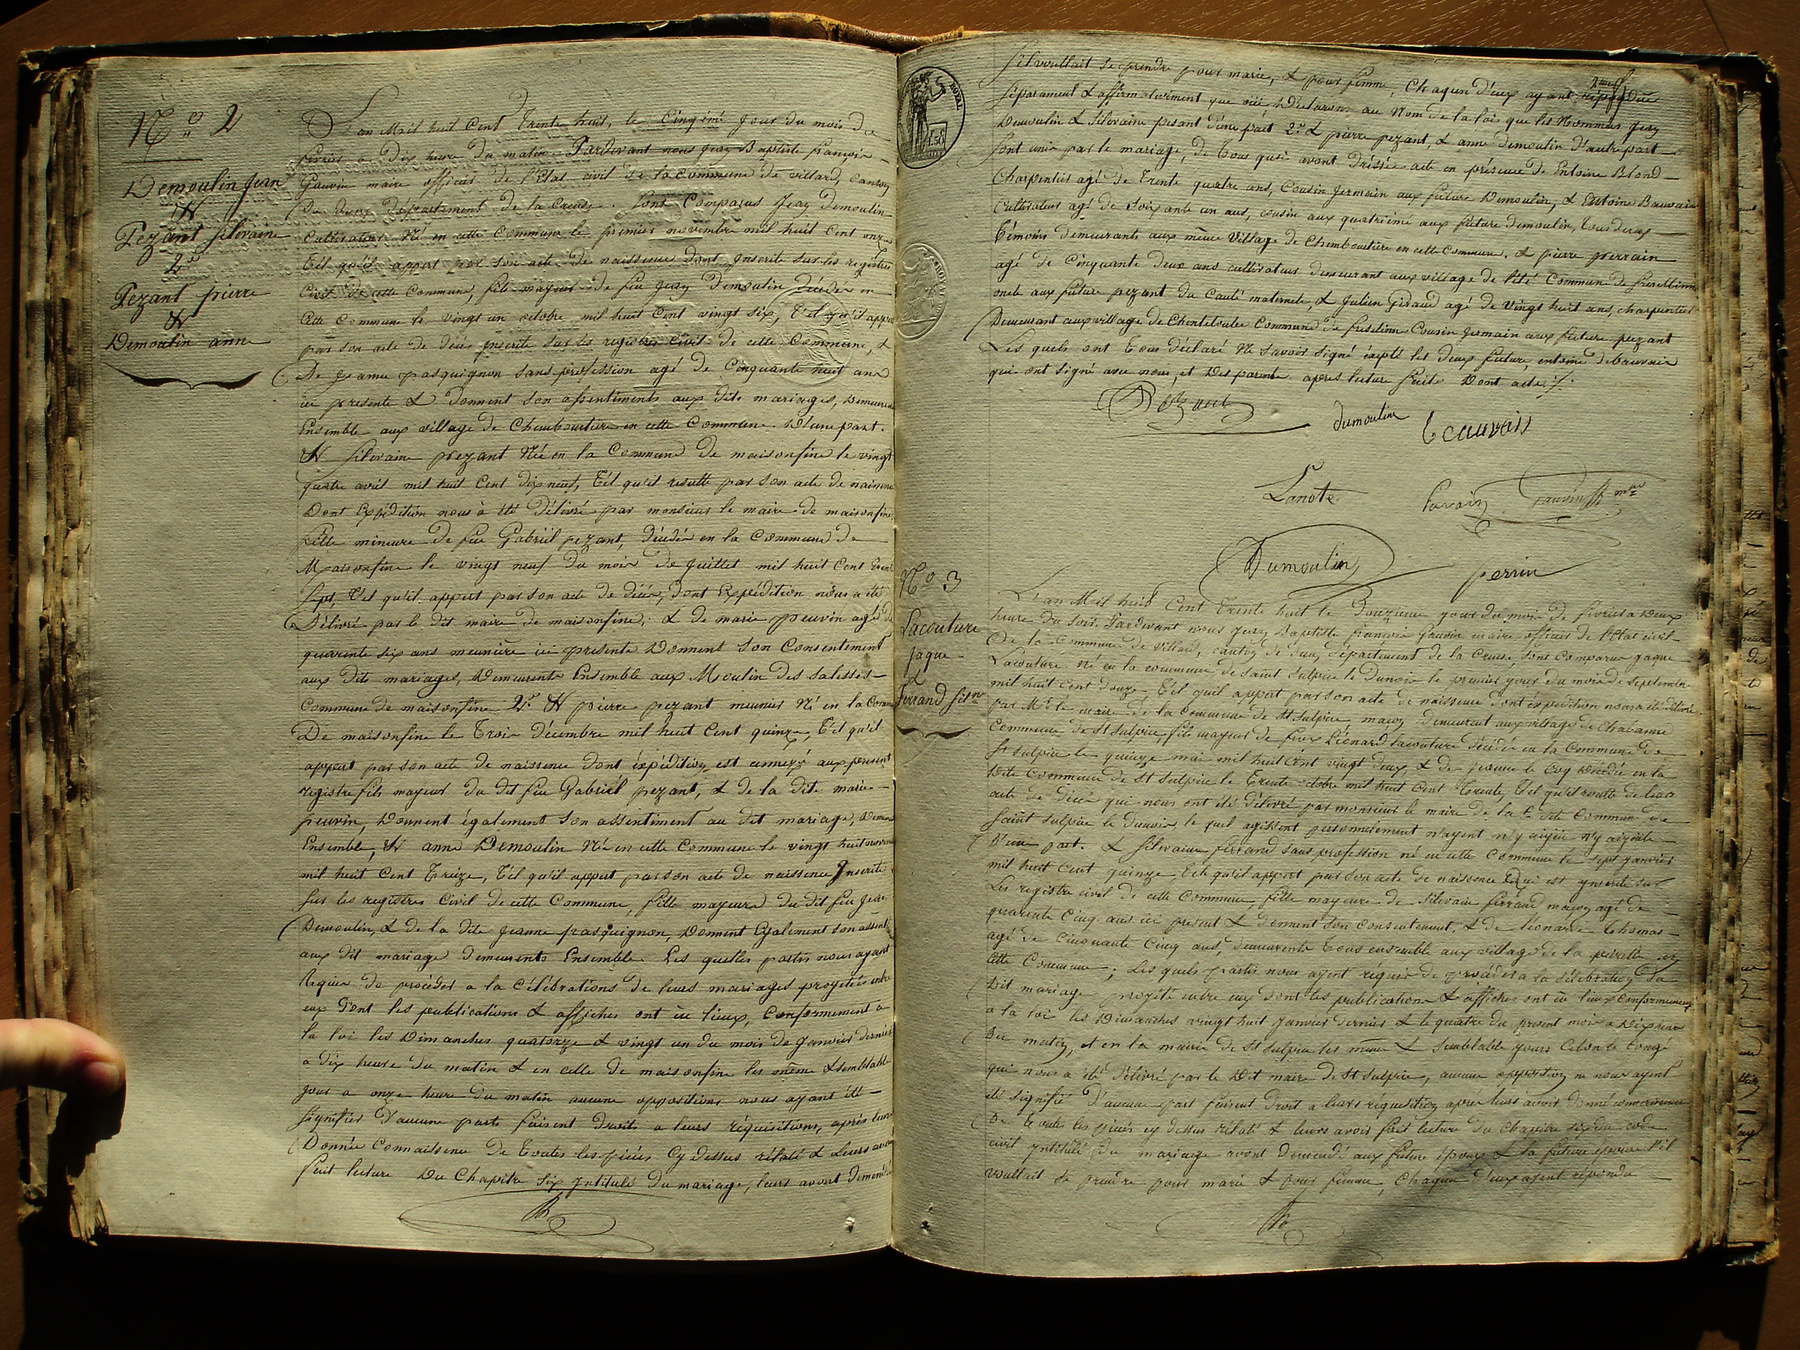 N.o 2
Demoulin Jean
&
Pezant silvaine
2.e
Pezant pierre
&
Demoulin anne
L'an Mil huit Cent Trente huit, le Cinqieme Jour du mois de
fevrier a Dix heure du matin. Pardevant nous Jean Baptiste françois
Gauvin maire officier de l'Etat civil de la Commune de villard, canton
du dun Departement de la Creuse. Sont Comparus Jean Demoulin
Cultivateur Né en cette Commune le premier novembre mil huit Cent onze
Tèl qu'il appert par son acte de naissence dont Inscrite sur les registres
Civil de cette Commune, fils majeur de feu Jean Demoulin Décédé en
Cette Commune le vingt un octobre mil huit Cent vingt six, Tèl qu'il appert
par son acte de décé inscrite sur les registres Civil de cette Commune, &
De Jeanne pasquignon sans profession agé de Cinquante huit ans
ici presente & donnent son assentiments aux dits mariages, Demeurent
Ensemble aux village de Chamboureau en cette Commune. D'une part.
& silvaine pezant Né en la Commune de maisonfeine le vingt
quatre avril mil huit Cent dix neuf, Tèl qu'il resulte par son acte de naissence
Dont Expédition nous à été Délivré par monsieur le maire de maisonfeine
fille mineure de feu Gabriel pezant, décédé en la Commune de
Maisonfeine le vingt neuf du mois de Juillet mil huit Cent trente
sept, Tèl qu'il appert par son acte de décé, dont Expédition nous a été
Délivré par le dit maire de maisonfeine; & de marie peuvrin agé de
quarente six ans meunière ici presente Donnent son Consentement
aux dits mariages, Demeurente Ensemble aux Moulin des salesses
Commune de maisonfeine 2.e & pierre pezant meunier Né en la Commune
De maisonfeine le Trois décembre mil huit Cent quinze, Tèl qu'il
appert par son acte de naissence dont expédition est annexé aux présent
registre fils majeur du dit feu Gabriel pezant, & de la dite marie
peuvrin, Donnent également son assentiment au dit mariage, Demeurent
Ensemble, & anne Demoulin Né en cette Commune le vingt huit novembre
mil huit Cent Treize, Tèl qu'il appert par son acte de naissence Inscrite
sur les registres Civil de cette Commune, fille majeure du dit feu Jean
Demoulin, & de la dite Jeanne pasquignon, Donnent Egalement son assentiment
aux dit mariage demeurents Ensemble. Les quelles partis nous ayant
Requis de procéder a la Célébrations de leurs mariages projettés entre
eux dont les publications & affiches ont eu lieux, Conformement à
la loi les Dimanches quatorze & vingt un du mois de Janvier dernier
à dix heure du matin & en celle de maisonfeine les même & semblable
jour a onze heure du matin aucune oppositions nous ayant été
signifier d'aucune parts faisent Droits a leurs réquisitions, après leurs
Donnée Connaissence de Toutes les pièces Cy dessus relaté & Leurs avoir
fait lecture Du Chapitre six Intitulé Du mariage, leurs avont demendé
s'il voullait se prendre pour marie, & pour femme, Chaqun d'eux ayant repondue
séparament & affirmativement que oüi, Déclarons au Nom de la loi que les Nommés Jean
Demoulin & silvaine pezant d'une part 2.e & pierre pezant, & anne demoulin d'autre part
sont unis par le mariage, de Tous quoi avont Dréssée acte en présence de Entoine Blond
Charpentier agé de Trente quatre ans, Cousin Germain aux future Demoulin, & Entoine Bauvais
Cultivateur agé de soixante un ans, cousin aux quatrième aux future demoulin, Tous deux
témoins demeurants aux même village de Chamboureau en cette Commune. & pierre perrain
agé de Cinquante deux ans cultivateur demeurant aux village de l'été Commune de fresseline
oncle aux future pezant du Cauté maternele, & Julien Giraud agé de vingt huit ans, charpentier
Demeurant aux village de Chenteloube Commune de freseline Cousin germain aux future pezant
Les quels ont Tous déclaré Ne savoir signé éxépté les deux future, entoine debrauvais
qui ont signé avec nous, et Des parents après lecture faite Dont acte ./.
Pezant
dumoulin
beauvais
Lanote
Gauvin m.re
Dumoulin
perrin
N.o 3
Lacouture
Jaque
&
ferrand silv.ne
L'an Mil huit Cent Trente huit le Douzieme Jour du mois de fevrier a Deux
heure du soir. Pardevant nous Jean Baptiste françois Gauvin maire officier de l'Etat civil
De la Commune de villard, canton de dun, département de la Creuse, sont Comparus Jaque
Lacouture Né en la Commune de saint sulpice le Dunois le premier jour du mois de septembre
mil huit Cent douze Tèl qu'il appert par son acte de naissence dont expédition nous a été délivré
par M.r le maire de la Commune de St sulpice, maçon demeurent aux village de Chabanne
Commune de St sulpice, fils majeur de feux Léonard Lacouture décédé en la Commune de
St sulpice le quinze mai mil huit Cent vingt deux, & de Jeanne le Coq Décédée en la
Dite Commune de St sulpice le Trente octobre mil huit Cent Trente, Tèl qu'il resulte de leurs
acte de décé qui nous ont été délivré par monsieur le maire de la Dite Commune de
saint sulpice le dunois, le quel agissent personnelement n'ayent n'y ayeux n'y ayeule
D'une part. & silvaine ferrand sans profession né en cette Commune le sept janvier
mil huit Cent quinze Tèl qu'il appert par son acte de naissence qui est inscrite sur
Les registre civil de cette Commune, fille majeure de silvain ferrand maçon agé de
quarente Cinq ans ici présent & donnent son Consentement, & de léonarde thomas
agé de Cinquante Cinq ans, demeurente Tous ensemble aux village de la peirelle en
Cette Commune; Les quels partis nous ayent réquis de procéder a la Célébration du
Dit mariage projeté entre eux dont les publications & affiches ont eu lieux Conformement
a la loi les Dimanches vingt huit Janvier dernier & le quatre du présent mois a dix heure
Du matin, et en la mairie de St sulpice les même & semblable jours selon le Congé
qui nous a été délivré par le Dit maire de St sulpice, aucune opposition ne nous ayent
été signifié d'aucune part faisent Droit a leurs réquisition après leurs avoir donné connaissence
De Toute les pièces cy dessus relaté & leurs avoir fait lecture du Chapitre six du code
civil Intitulé du mariage avont demendé aux future époux & la future épouse s'il
voullait se prendre pour marie & pour femme, Chaqun d'eux ayent répondu